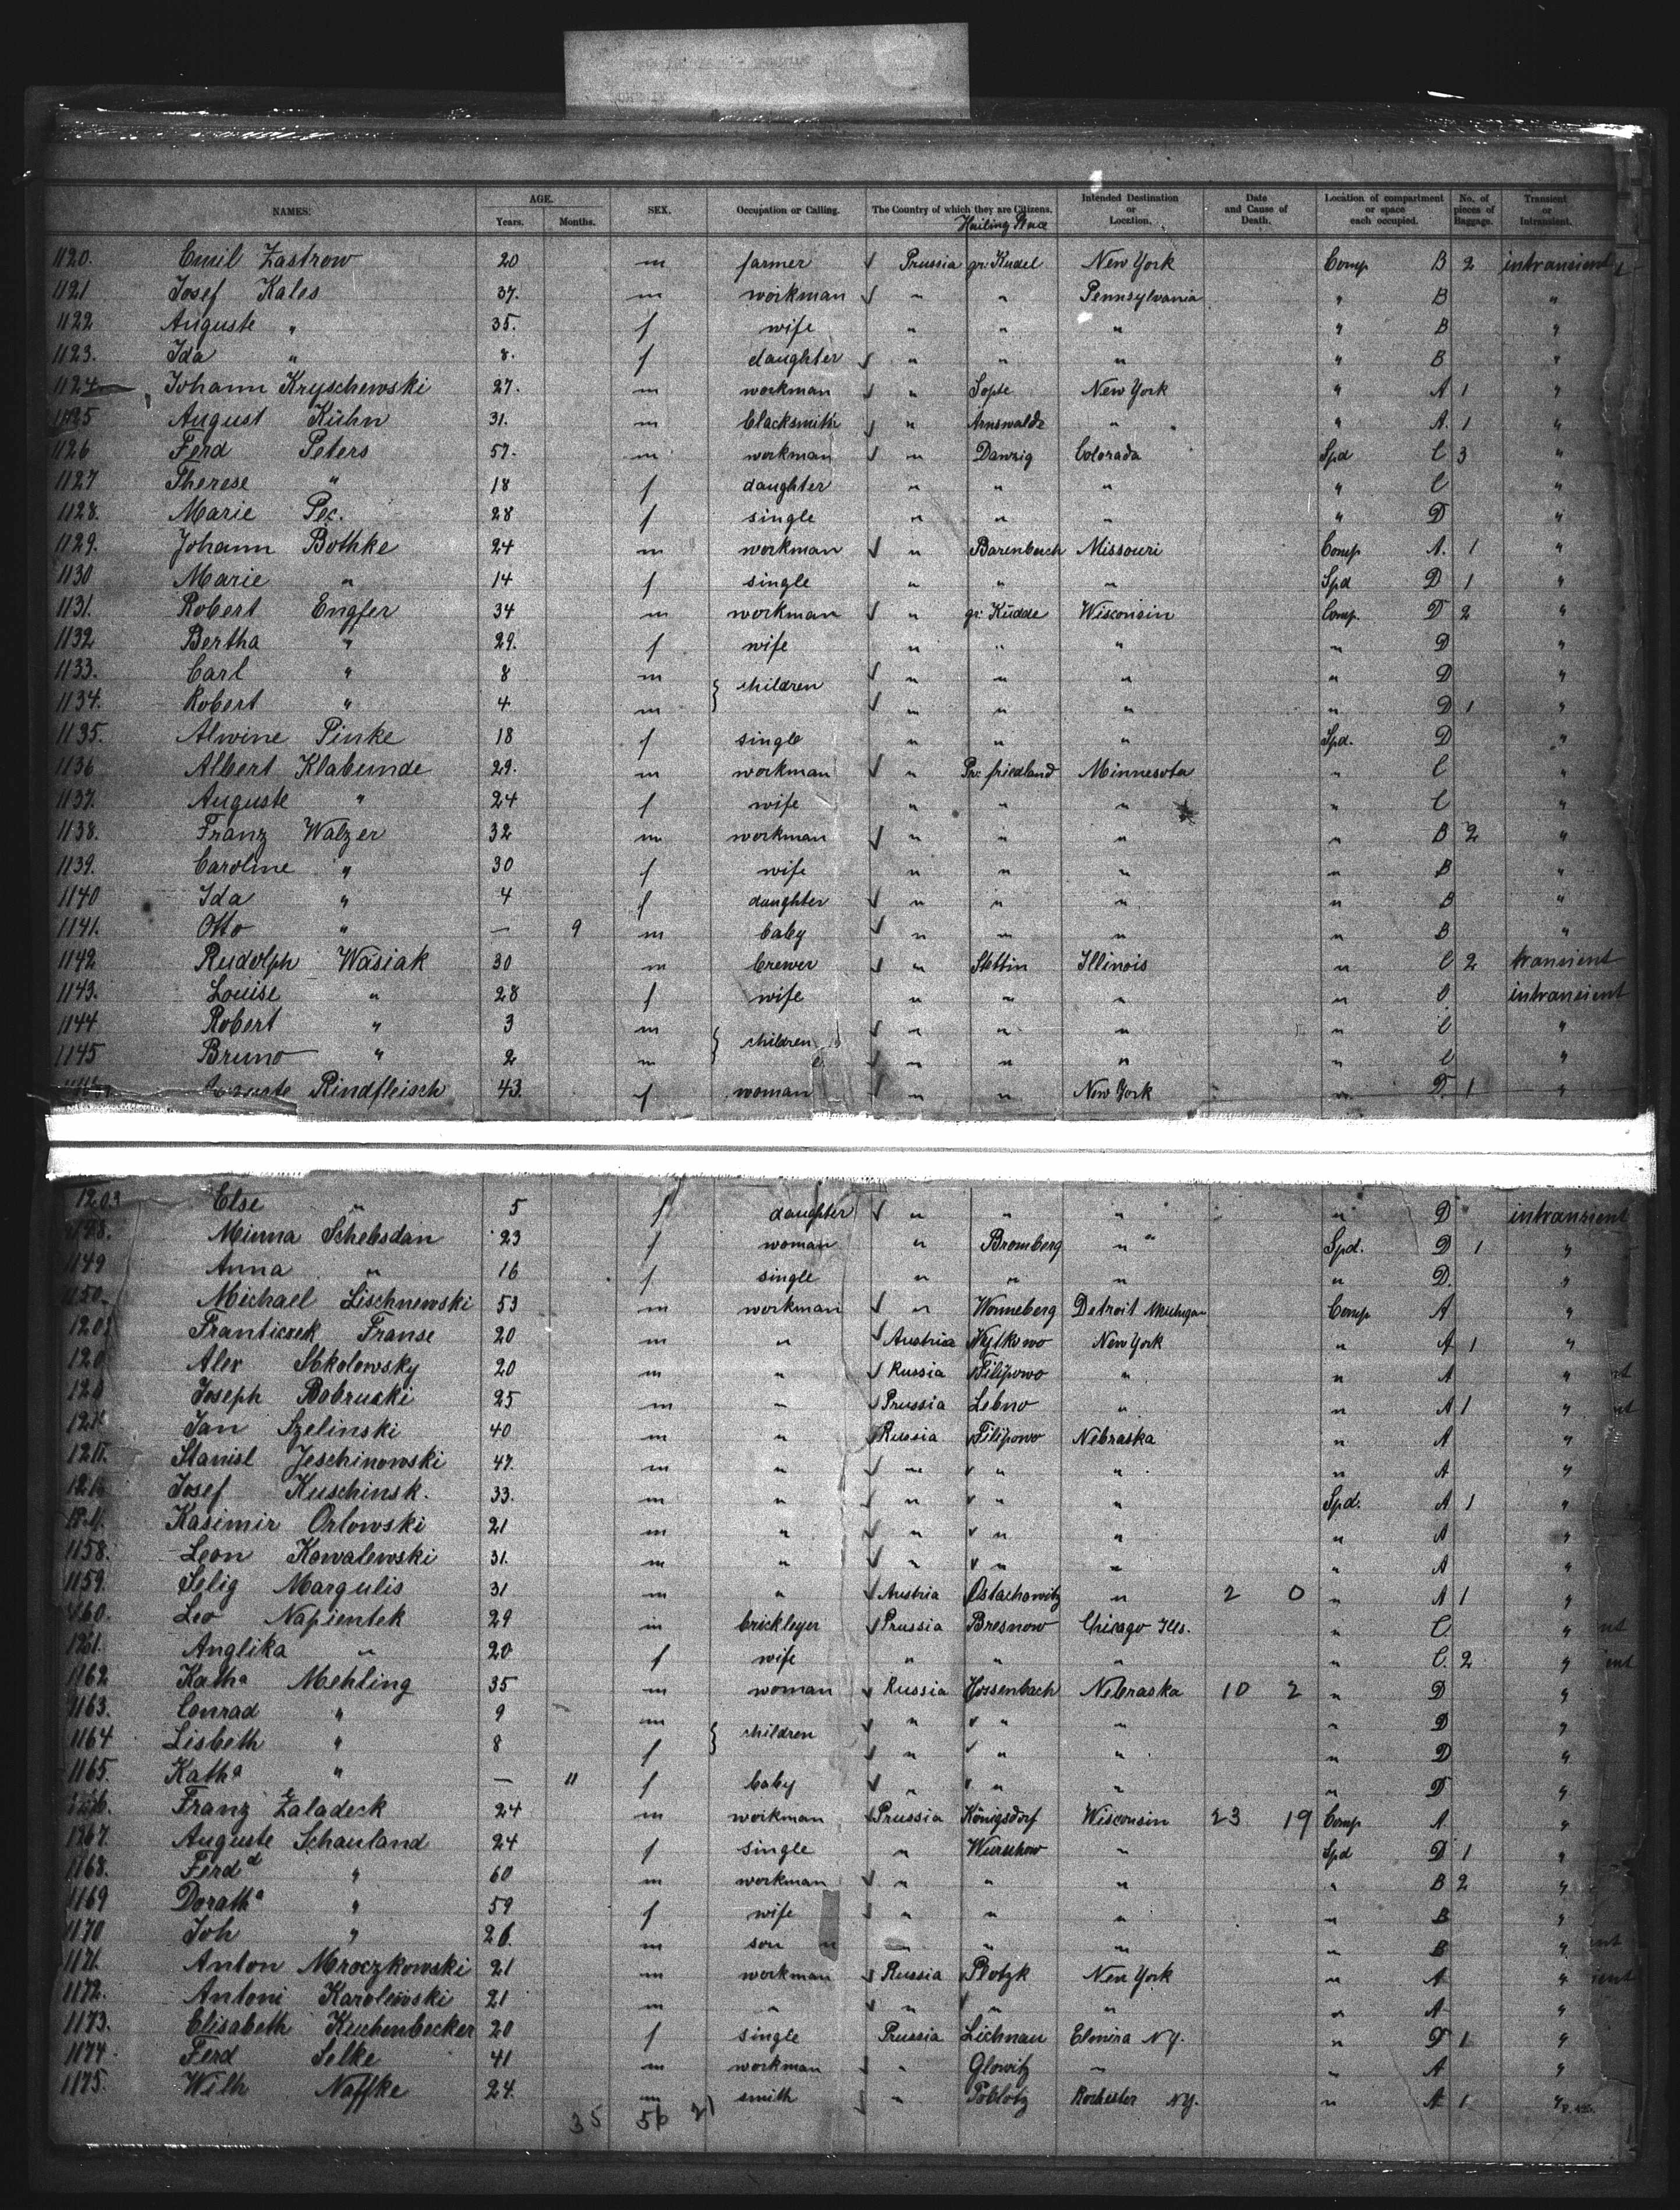 NAMES. AGE. Years. Months. SEX. Occupation or Calling. The Country of which they are Citizens. Hailing Place Intended Destination or Location. Date and Cause of Death. Location of compartment or space each occupied. No. of pieces of Baggage. Transient or Intransient.
1120. Emil Zastrow 20 m farmer Prussia gr. Kudel New York Comp B 2 intransient
1121 Josef Kales 37. m workman " " Pennsylvania " B "
1122 Auguste " 35. f wife " " " " B "
1123. Ida " 8. f daughter " " " " B "
1124 Johann Kryschewski 27. m workman " New York " A 1 "
1125 August Kühn 31. m blacksmith " Arnswalde " " A. 1 "
1126 Ferd Peters 57. m workman " Danzig Colorada Spd C 3 "
1127 Therese " 18 f daughter " " " " C "
1128. Marie Pec. 28 f single " " " " D "
1129. Johann Bothke 24 m workman " Barenbusch Missouri Comp A. 1 "
1130 Marie " 14 f single " " " Spd D 1 "
1131. Robert Engfer 34 m workman " gr. Küdde Wisconsin Comp. D 2 "
1132 Bertha " 29. f wife " " " " D "
1133. Carl " 8 m children " " " " D "
1134. Robert " 4 m " " " " D 1 "
1135. Alwine Pinke 18 f single " " " Spd. D "
1136 Albert Klabunde 29. m workman " Pr. friedland Minnesota " C "
1137. Auguste " 24 f wife " " " " C "
1138. Franz Walzer 32 m workman " " " " B 2 "
1139. Caroline " 30 f wife " " " " B "
1140 Ida " 4 f daughter " " " " B "
1141. Otto " — 9 m baby " " " " B "
1142 Rudolph Wasiak 30 m brewer " Stettin Illinois " C 2 transient
1143. Louise " 28 f wife " " " " C intransient
1144 Robert " 3 m children " " " " C "
1145 Bruno " 2 m " " " " C "
Rindfleisch 43. f woman " " New York " D. 1 "
1203 Else " 5 f daughter " " " " D intransient
Minna Schebsdan 23 f woman " Bromberg " Spd. D 1 "
1149 Anna " 16 f single " " " " D. "
1150. Michael Lischnewski 53 m workman " Wonneberg Detroit Michigan Comp A "
Franticzek Franse 20 m " Austria New York " A 1 "
Alex Sokolowsky 20 m " Russia Filipowo " " A "
Joseph Bobruski 25 m " Prussia Lebno " " A 1 "
Jan Szelinski 40 m " Russia Filipowo Nebraska " A "
Stanisl Jeschinowski 47. m " " " " " A "
Josef Kuschinsk. 33. m " " " " Spd. A 1 "
Kasimir Orlowski 21 m " " " " " A "
1158. Leon Kowalewski 31. m " " " " " A "
1159. Selig Margulis 31 m " Austria Ostachowitz " 2 0 " A 1 "
1160. Leo Napientek 29 m brickleyer Prussia Bresnow Chicago Ills. " C "
1161. Anglika " 20 f wife " " " " C. 2 "
1162 Katha Mehling 35 m woman Russia Hossenbach Nebraska 10 2 " D "
1163. Conrad " 9 m children " " " " D "
1164 Lisbeth " 8 f " " " " D "
1165. Katha " — 11 f baby " " " " D "
Franz Zaladeck 24 m workman Prussia Königsdorf Wisconsin 23 19 Comp A "
1167. Auguste Schauland 24 f single " Wurschow " Spd D 1 "
1168. Ferdd " 60 m workman " " " " B 2 "
1169 Doratha " 59 f wife " " " " B "
1170 Joh " 26. m son " " " " B "
1171. Anton Mroczkowski 21 m workman Russia Plotzk New York " A "
1172. Antoni Karolewski 21 m " " " " " A "
1173. Elisabeth Kuchenbecker 20 f single Prussia Lichnau Elmira N.Y. " D 1 "
1174. Ferd Selke 41 m workman " Glowitz " " A "
1175. Wilh Naffke 24. m smith " Poblotz Rochester N.Y. " A 1 "
35 56 21